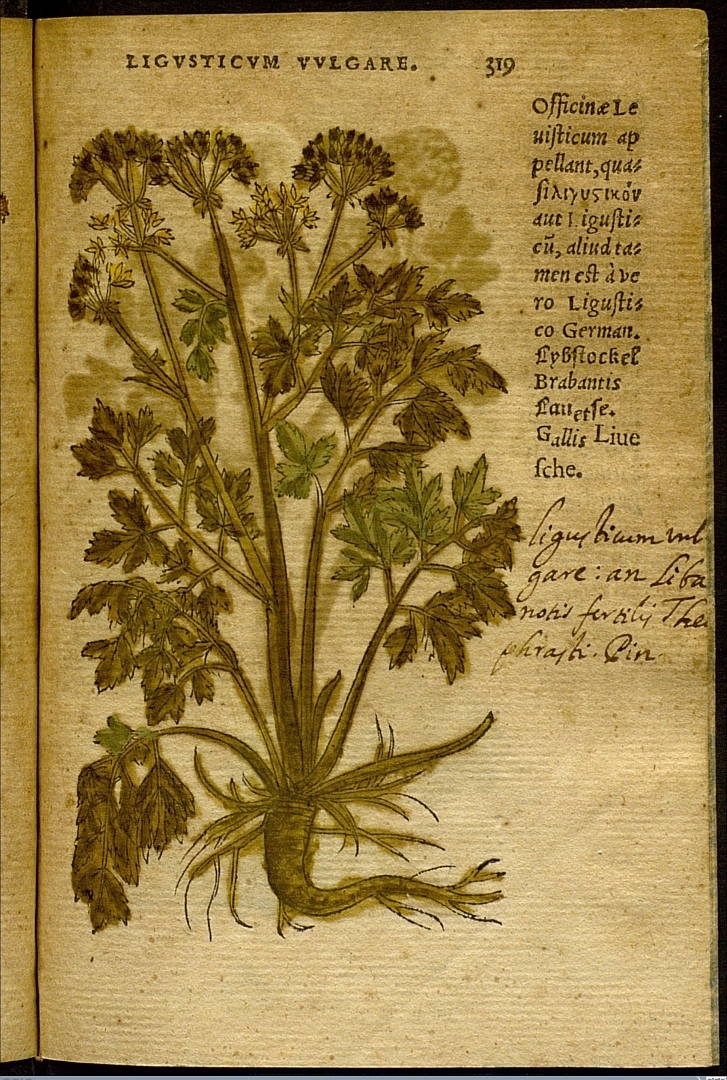 LIGVSTICVM VVLGARE. 319
Officinæ Le
uisticum ap
pellant, qua-
si λιγυςικὸν
aut Ligusti-
cũ, aliud ta-
men est à ve
ro Ligusti-
co German.
Lybstockel
Brabantis
Lauetse.
Gallis Liue
sche.
ligusticum vul
gare: an Liba
notis fertilis The
phrasti. Pin